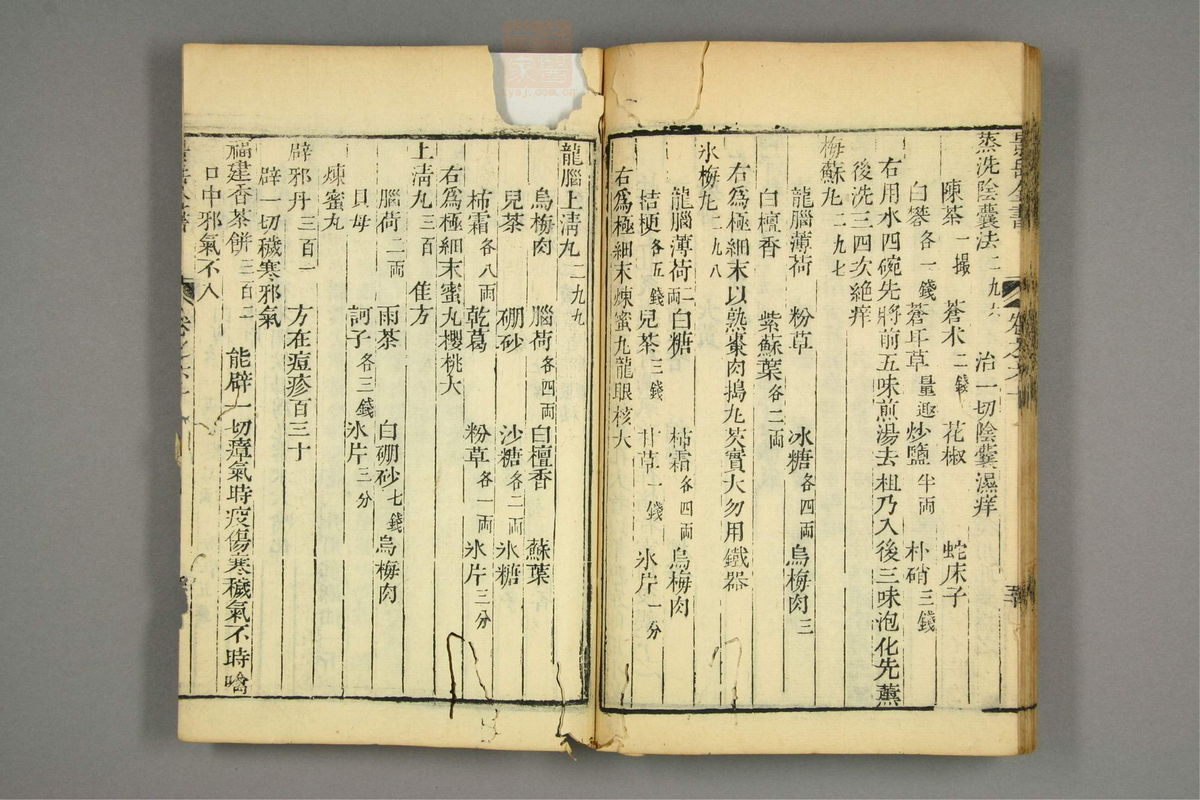 蒸洗陰囊法二九六　治一切陰囊濕痒
陳茶一撮　蒼朮二錢　花椒　蛇床子
白礬各一錢　蒼耳草量趣　炒鹽半両　朴硝三錢
右用水四碗先將前五味煎湯去柤乃入後三味泡化先薰
後洗三四次絶痒
梅蘇丸二九七
龍腦薄荷　粉草　冰糖各四両　烏梅肉三
白檀香　紫蘇葉各二両
右爲極細末以熟棗肉搗丸芡實大勿用鐵器
氷梅丸二九八
龍腦薄荷二両　白糖　柿霜各四両　烏梅肉
桔梗各五錢　兒茶三錢　甘草一錢　氷片一分
右爲極細末煉蜜丸龍眼核大
龍腦上清丸二九九
烏梅肉　腦荷各四両　白檀香　蘇葉
兒茶　硼砂　沙糖各二両　氷糖
柿霜各八両　乾葛　粉草各一両　氷片三分
右爲極細末蜜丸櫻桃大
上清丸三百　佳方
腦荷二両　雨茶　白硼砂七錢　烏梅肉
貝母　訶子各三錢　氷片三分
煉蜜丸
辟邪丹三百一　方在痘疹百三十
辟一切穢寒邪氣
福建香茶餅三百二　能辟一切瘴氣時疫傷寒穢氣不時噙
口中邪氣不入